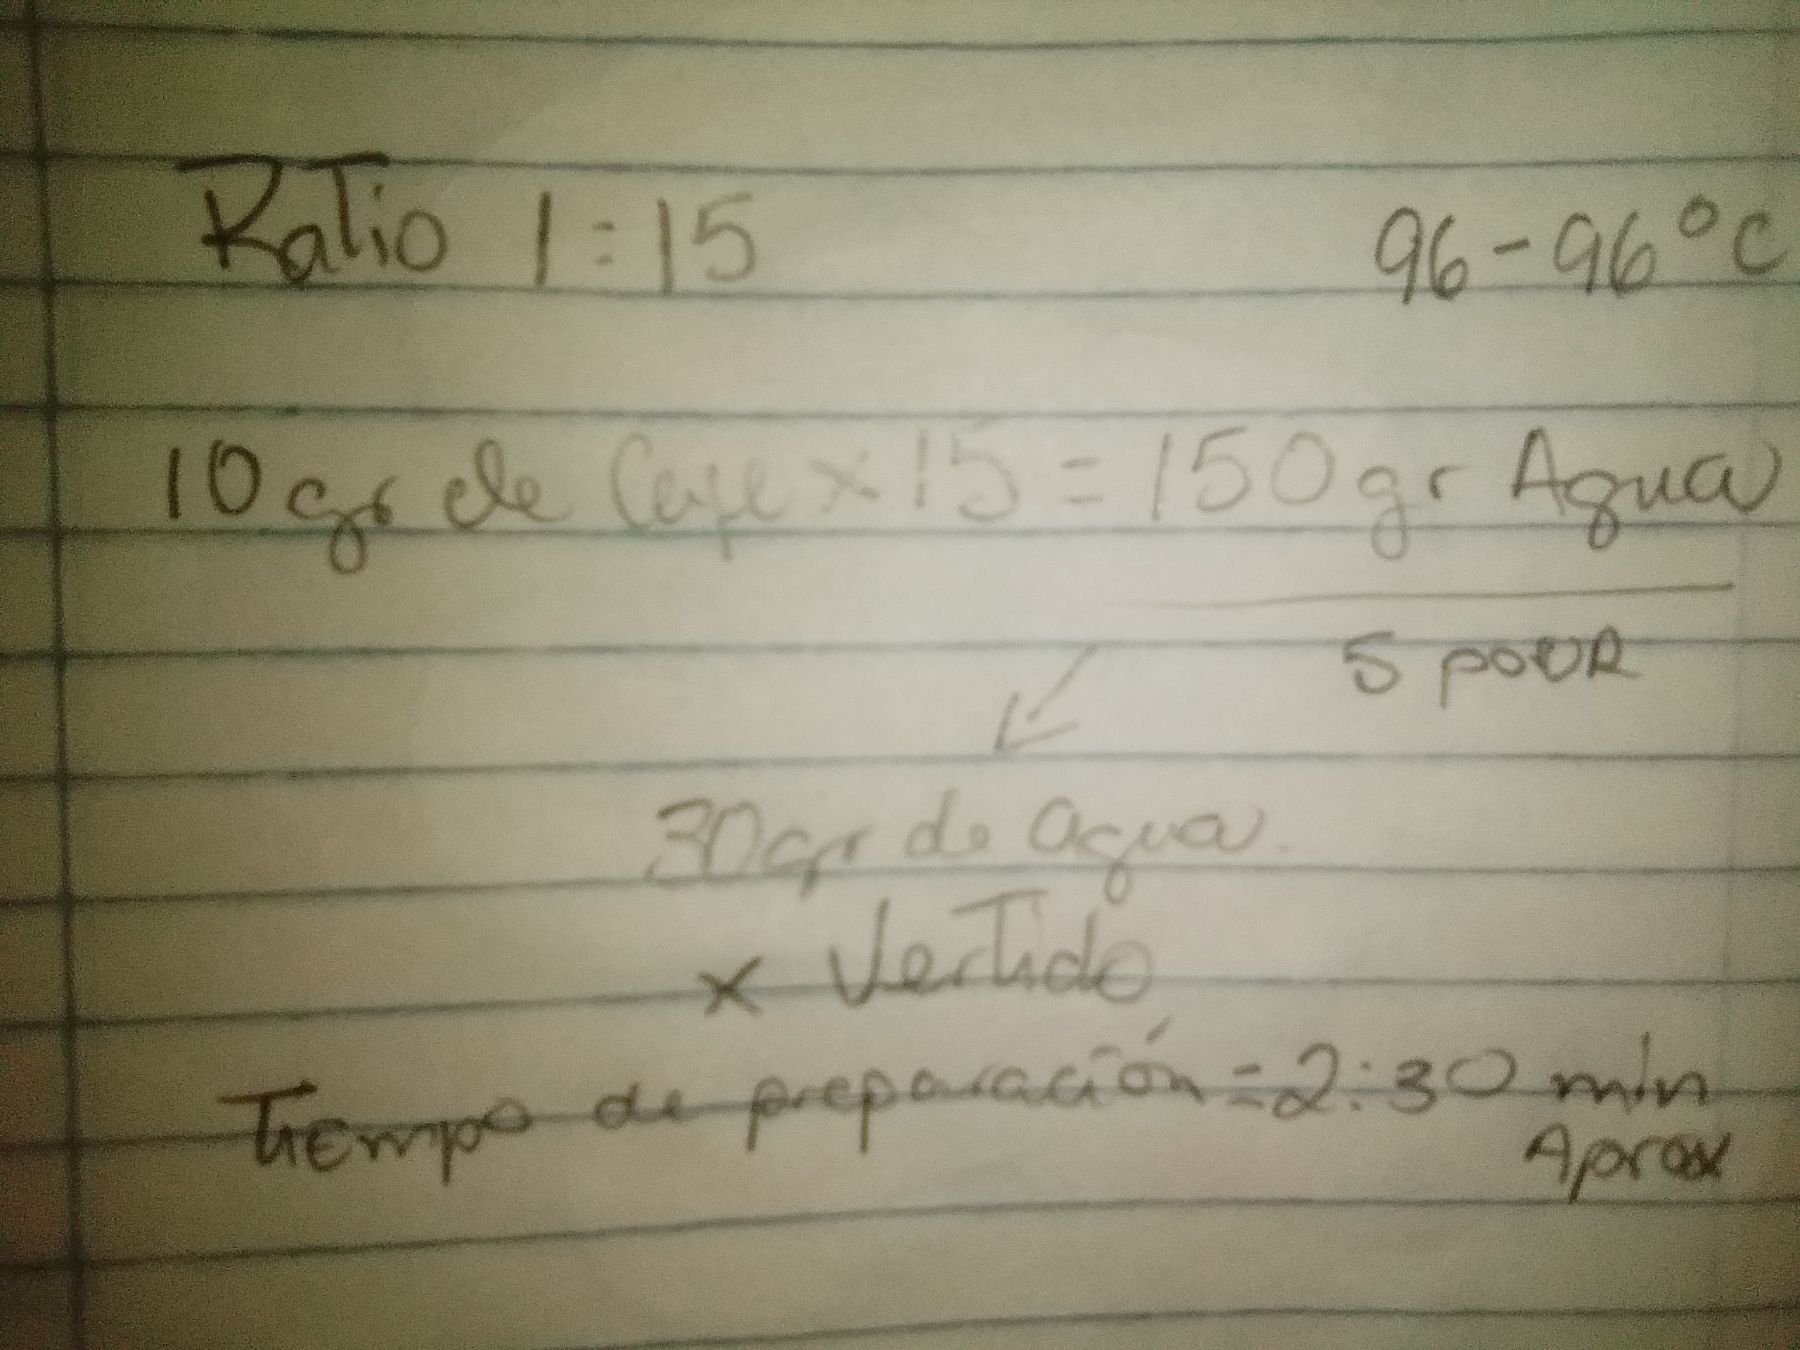 Ratio 1:15 96-96°C
10gr de Cafe x 15 = 150gr Agua
5 pour
30gr de agua
x Vertido
Tiempo de preparación = 2:30 min
Aprox